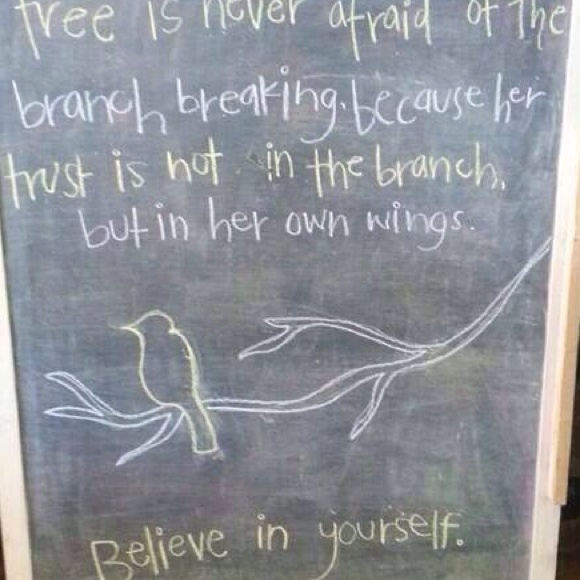 tree is never afraid of the
branch breaking, because her
trust is not in the branch,
but in her own wings.
Believe in yourself.